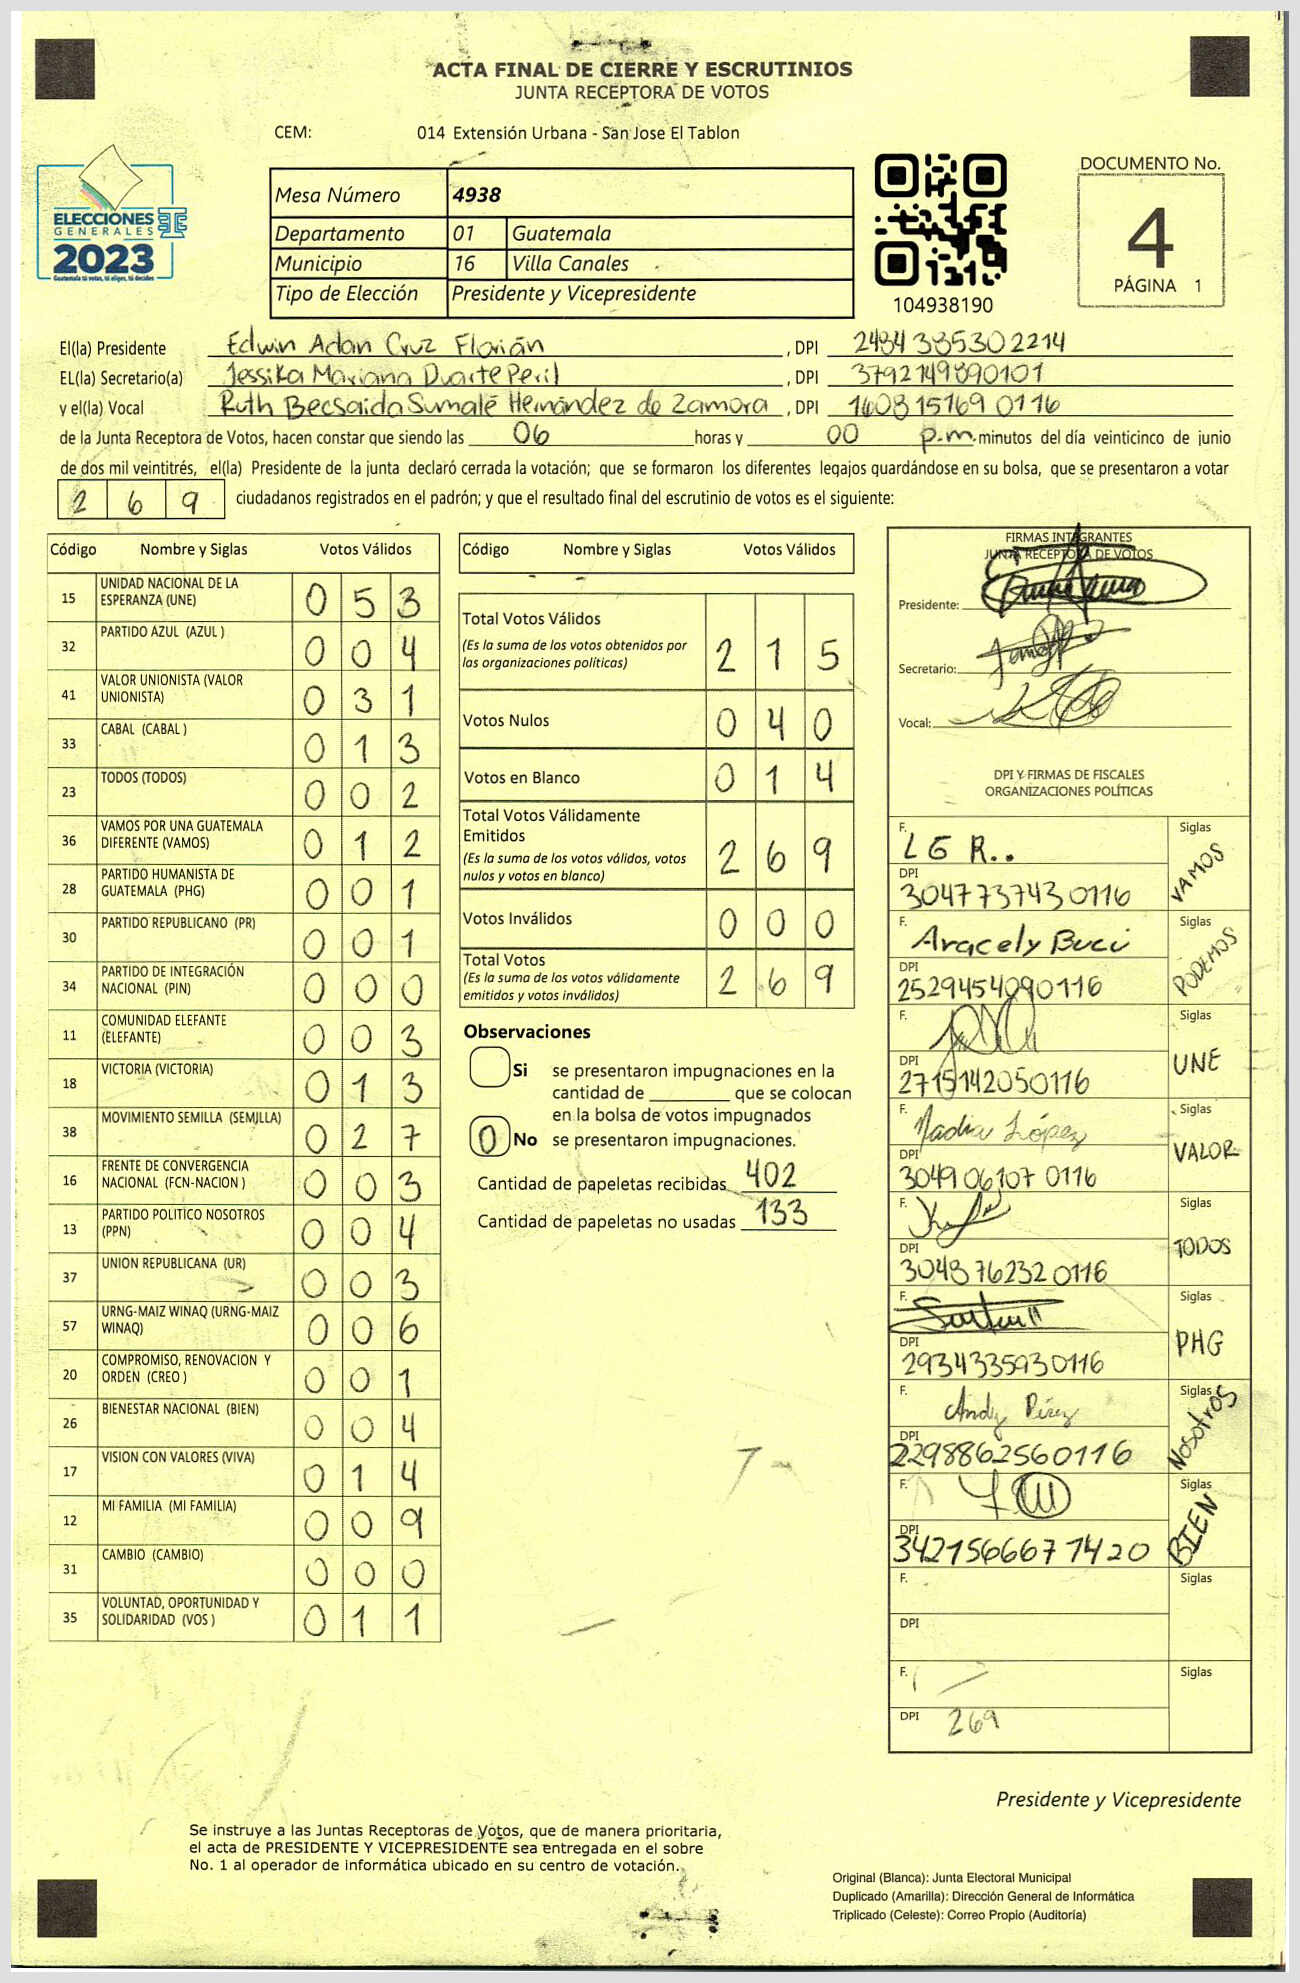 ACTA FINAL DE CIERRE Y ESCRUTINIOS
JUNTA RECEPTORA DE VOTOS
CEM: 014 Extensión Urbana - San Jose El Tablon
ELECCIONES
GENERALES
2023
Guatemala tú votas, tú eliges, tú decides
Mesa Número 4938
Departamento 01 Guatemala
Municipio 16 Villa Canales
Tipo de Elección Presidente y Vicepresidente
104938190
DOCUMENTO No.
4
PÁGINA 1
El(la) Presidente Edwin Adan Cruz Florián, DPI 2484385302214
EL(la) Secretario(a) Jessika Mariana Duarte Peril, DPI 3792149890101
y el(la) Vocal Ruth Becsaida Sumalé Hernández de Zamora, DPI 1608151690116
de la Junta Receptora de Votos, hacen constar que siendo las 06 horas y 00 p.m. minutos del día veinticinco de junio
de dos mil veintitrés, el(la) Presidente de la junta declaró cerrada la votación; que se formaron los diferentes legajos guardándose en su bolsa, que se presentaron a votar
2 6 9 ciudadanos registrados en el padrón; y que el resultado final del escrutinio de votos es el siguiente:
Código Nombre y Siglas Votos Válidos
15 UNIDAD NACIONAL DE LA ESPERANZA (UNE) 0 5 3
32 PARTIDO AZUL (AZUL ) 0 0 4
41 VALOR UNIONISTA (VALOR UNIONISTA) 0 3 1
33 CABAL (CABAL ) 0 1 3
23 TODOS (TODOS) 0 0 2
36 VAMOS POR UNA GUATEMALA DIFERENTE (VAMOS) 0 1 2
28 PARTIDO HUMANISTA DE GUATEMALA (PHG) 0 0 1
30 PARTIDO REPUBLICANO (PR) 0 0 1
34 PARTIDO DE INTEGRACIÓN NACIONAL (PIN) 0 0 0
11 COMUNIDAD ELEFANTE (ELEFANTE) 0 0 3
18 VICTORIA (VICTORIA) 0 1 3
38 MOVIMIENTO SEMILLA (SEMILLA) 0 2 7
16 FRENTE DE CONVERGENCIA NACIONAL (FCN-NACION ) 0 0 3
13 PARTIDO POLITICO NOSOTROS (PPN) 0 0 4
37 UNION REPUBLICANA (UR) 0 0 3
57 URNG-MAIZ WINAQ (URNG-MAIZ WINAQ) 0 0 6
20 COMPROMISO, RENOVACION Y ORDEN (CREO ) 0 0 1
26 BIENESTAR NACIONAL (BIEN) 0 0 4
17 VISION CON VALORES (VIVA) 0 1 4
12 MI FAMILIA (MI FAMILIA) 0 0 9
31 CAMBIO (CAMBIO) 0 0 0
35 VOLUNTAD, OPORTUNIDAD Y SOLIDARIDAD (VOS ) 0 1 1
Código Nombre y Siglas Votos Válidos
Total Votos Válidos
(Es la suma de los votos obtenidos por
las organizaciones políticas) 2 1 5
Votos Nulos 0 4 0
Votos en Blanco 0 1 4
Total Votos Válidamente
Emitidos
(Es la suma de los votos válidos, votos
nulos y votos en blanco) 2 6 9
Votos Inválidos 0 0 0
Total Votos
(Es la suma de los votos válidamente
emitidos y votos inválidos) 2 6 9
Observaciones
Si se presentaron impugnaciones en la
cantidad de que se colocan
en la bolsa de votos impugnados
0 No se presentaron impugnaciones.
Cantidad de papeletas recibidas 402
Cantidad de papeletas no usadas 133
FIRMAS INTEGRANTES
JUNTA RECEPTORA DE VOTOS
Presidente:
Secretario:
Vocal:
DPI Y FIRMAS DE FISCALES
ORGANIZACIONES POLÍTICAS
F. L G R.. Siglas VAMOS
DPI 3047737430116
F. Aracely Buci Siglas PODEMOS
DPI 2529454090116
F. Siglas UNE
DPI 2715142050116
F. Nadia López Siglas VALOR
DPI 3049061070116
F. Siglas TODOS
DPI 3048762320116
F. Siglas PHG
DPI 2934335930116
F. Andy Pérez Siglas NOSOTROS
DPI 2298862560116
F. Siglas BIEN
DPI 3421566671420
F. Siglas
DPI
F. Siglas
DPI 269
Presidente y Vicepresidente
Se instruye a las Juntas Receptoras de Votos, que de manera prioritaria,
el acta de PRESIDENTE Y VICEPRESIDENTE sea entregada en el sobre
No. 1 al operador de informática ubicado en su centro de votación.
Original (Blanca): Junta Electoral Municipal
Duplicado (Amarilla): Dirección General de Informática
Triplicado (Celeste): Correo Propio (Auditoría)